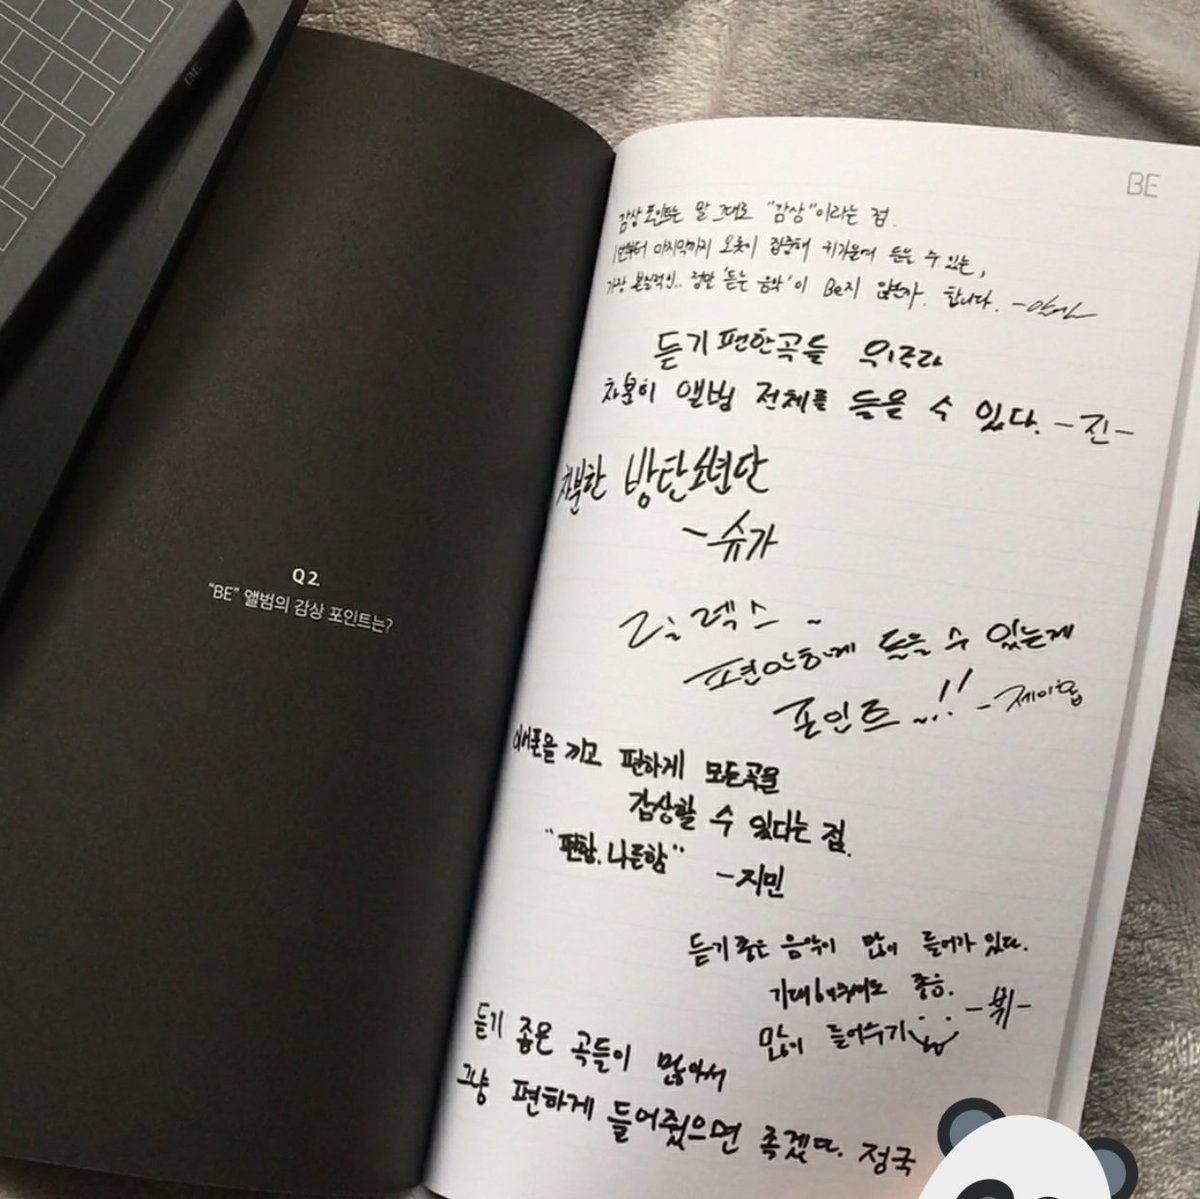 BE
Q2.
"BE" 앨범의 감상 포인트는?
BE
감상 포인트는 말 그대로 "감상"이라는 점.
1번부터 마지막까지 오롯이 집중해 귀기울여 들을 수 있는,
가장 본질적인.. 정말 '듣는 음악'이 Be지 않은가. 합니다.
듣기 편한곡들 위주라
차분히 앨범 전체를 들을 수 있다. -진-
차분한 방탄소년단
-슈가
릴렉스~
편안하게 들을 수 있는게
포인트~!! -제이홉
이어폰을 끼고 편하게 모든곡을
감상할 수 있다는 점.
"편함. 나른함" -지민
듣기 좋은 음악이 많이 들어가 있다.
기대해주셔도 좋음. -뷔-
많이 들어주기
듣기 좋은 곡들이 많아서
그냥 편하게 들어줬으면 좋겠다. 정국